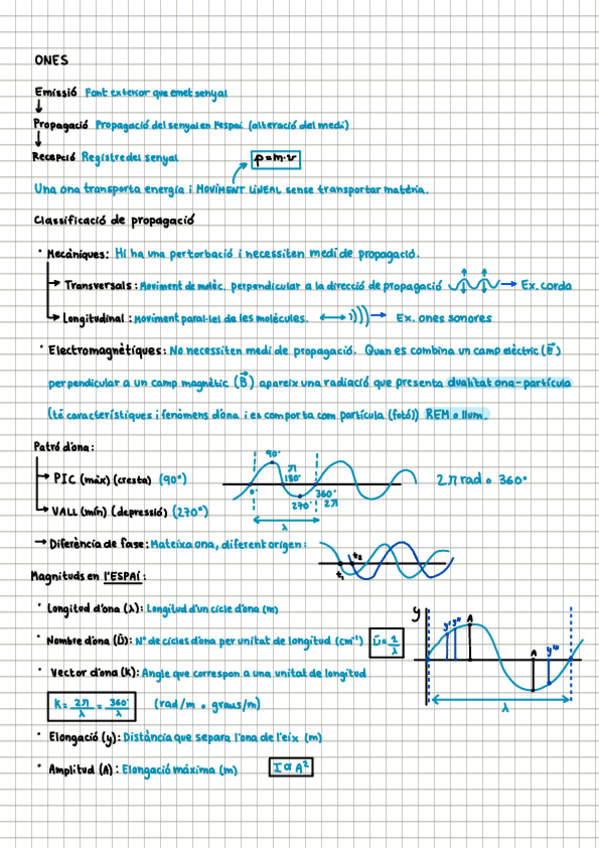 ONES
Emissió Font exterior que emet senyal
Propagació Propagació del senyal en l'espai (alteració del medi)
Recepció Registre del senyal
p = m·v
Una ona transporta energia i MOVIMENT LINEAL sense transportar matèria.
Classificació de propagació
· Mecàniques: Hi ha una pertorbació i necessiten medi de propagació.
→ Transversals: Moviment de molèc. perpendicular a la direcció de propagació → Ex. corda
→ Longitudinal: Moviment paral·lel de les molècules. Ex. ones sonores
· Electromagnètiques: No necessiten medi de propagació. Quan es combina un camp elèctric (E⃗)
perpendicular a un camp magnètic (B⃗) apareix una radiació que presenta dualitat ona-partícula
(té característiques i fenòmens d'ona i es comporta com partícula (fotó)) REM o llum.
Patró d'ona:
→ PIC (màx) (cresta) (90°)
→ VALL (mín) (depressió) (270°)
90°
π
180°
0°
270°
360°
2π
λ
2π rad o 360°
→ Diferència de fase: Mateixa ona, diferent orígen:
t₁
t₂
Magnituds en l'ESPAI:
· Longitud d'ona (λ): Longitud d'un cicle d'ona (m)
· Nombre d'ona (Ũ): Nº de cicles d'ona per unitat de longitud (cm⁻¹) Ũ = 1/λ
· Vector d'ona (K): Angle que correspon a una unitat de longitud
K = 2π/λ = 360°/λ (rad/m o graus/m)
· Elongació (y): Distància que separa l'ona de l'eix (m)
· Amplitud (A): Elongació màxima (m) I α A²
y
y'
y''
A
A
y'''
λ